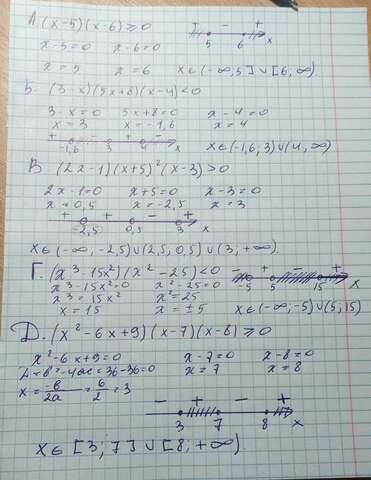 А. (x-5)(x-6)≥0 + - +
5 6 x
x-5=0 x-6=0
x=5 x=6 x∈(-∞,5]∪[6,∞)
Б. (3-x)(5x+8)(x-4)<0
3-x=0 5x+8=0 x-4=0
x=3 x=-1,6 x=4
-1,6 3 x x∈(-1,6;3)∪(4,∞)
В. (2x-1)(x+5)²(x-3)>0
2x-1=0 x+5=0 x-3=0
x=0,5 x=-2,5 x=3
+ + - +
-2,5 0,5 3 x
x∈(-∞,-2,5)∪(2,5,0,5)∪(3,+∞).
Г. (x³-15x²)(x²-25)<0 - + - +
x³-15x²=0 x²-25=0 -5 5 15 x
x³=15x² x²=25
x=15 x=±5 x∈(-∞,-5)∪(5,15)
Д. (x²-6x+9)(x-7)(x-8)≥0
x²-6x+9=0 x-7=0 x-8=0
Д=в²-4ac=36-36=0 x=7 x=8
x=-в/2a=6/2=3
- + - +
3 7 8 x
x∈[3;7]∪[8;+∞)